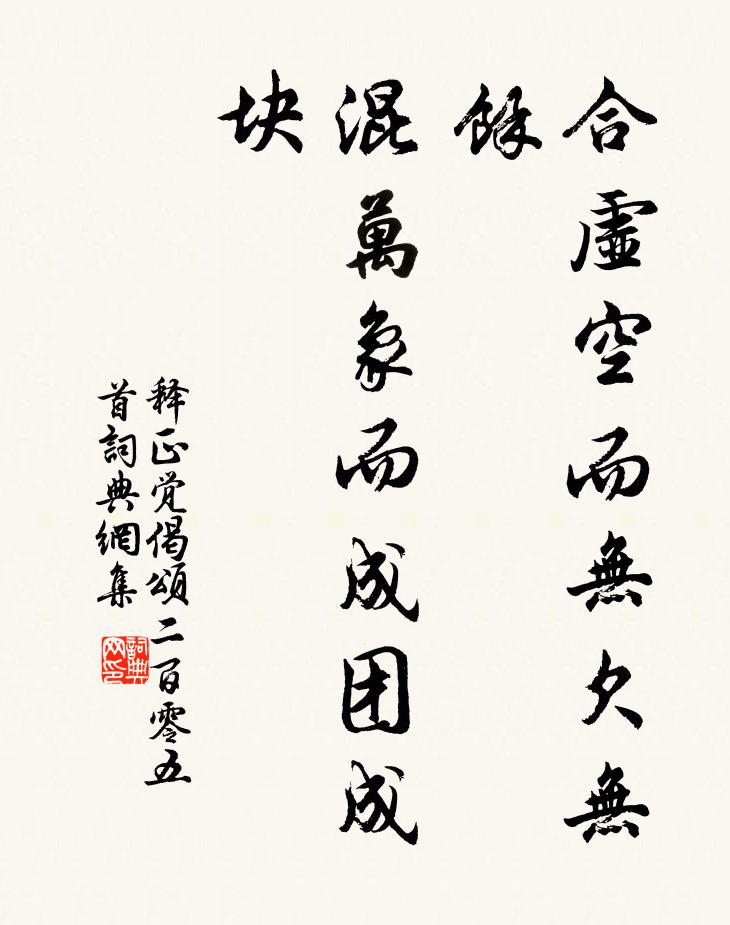 合虛空而無欠無
餘
混萬象而成团成
块
释正覚偈頌二百零五
首詞典網集
詞典
网印